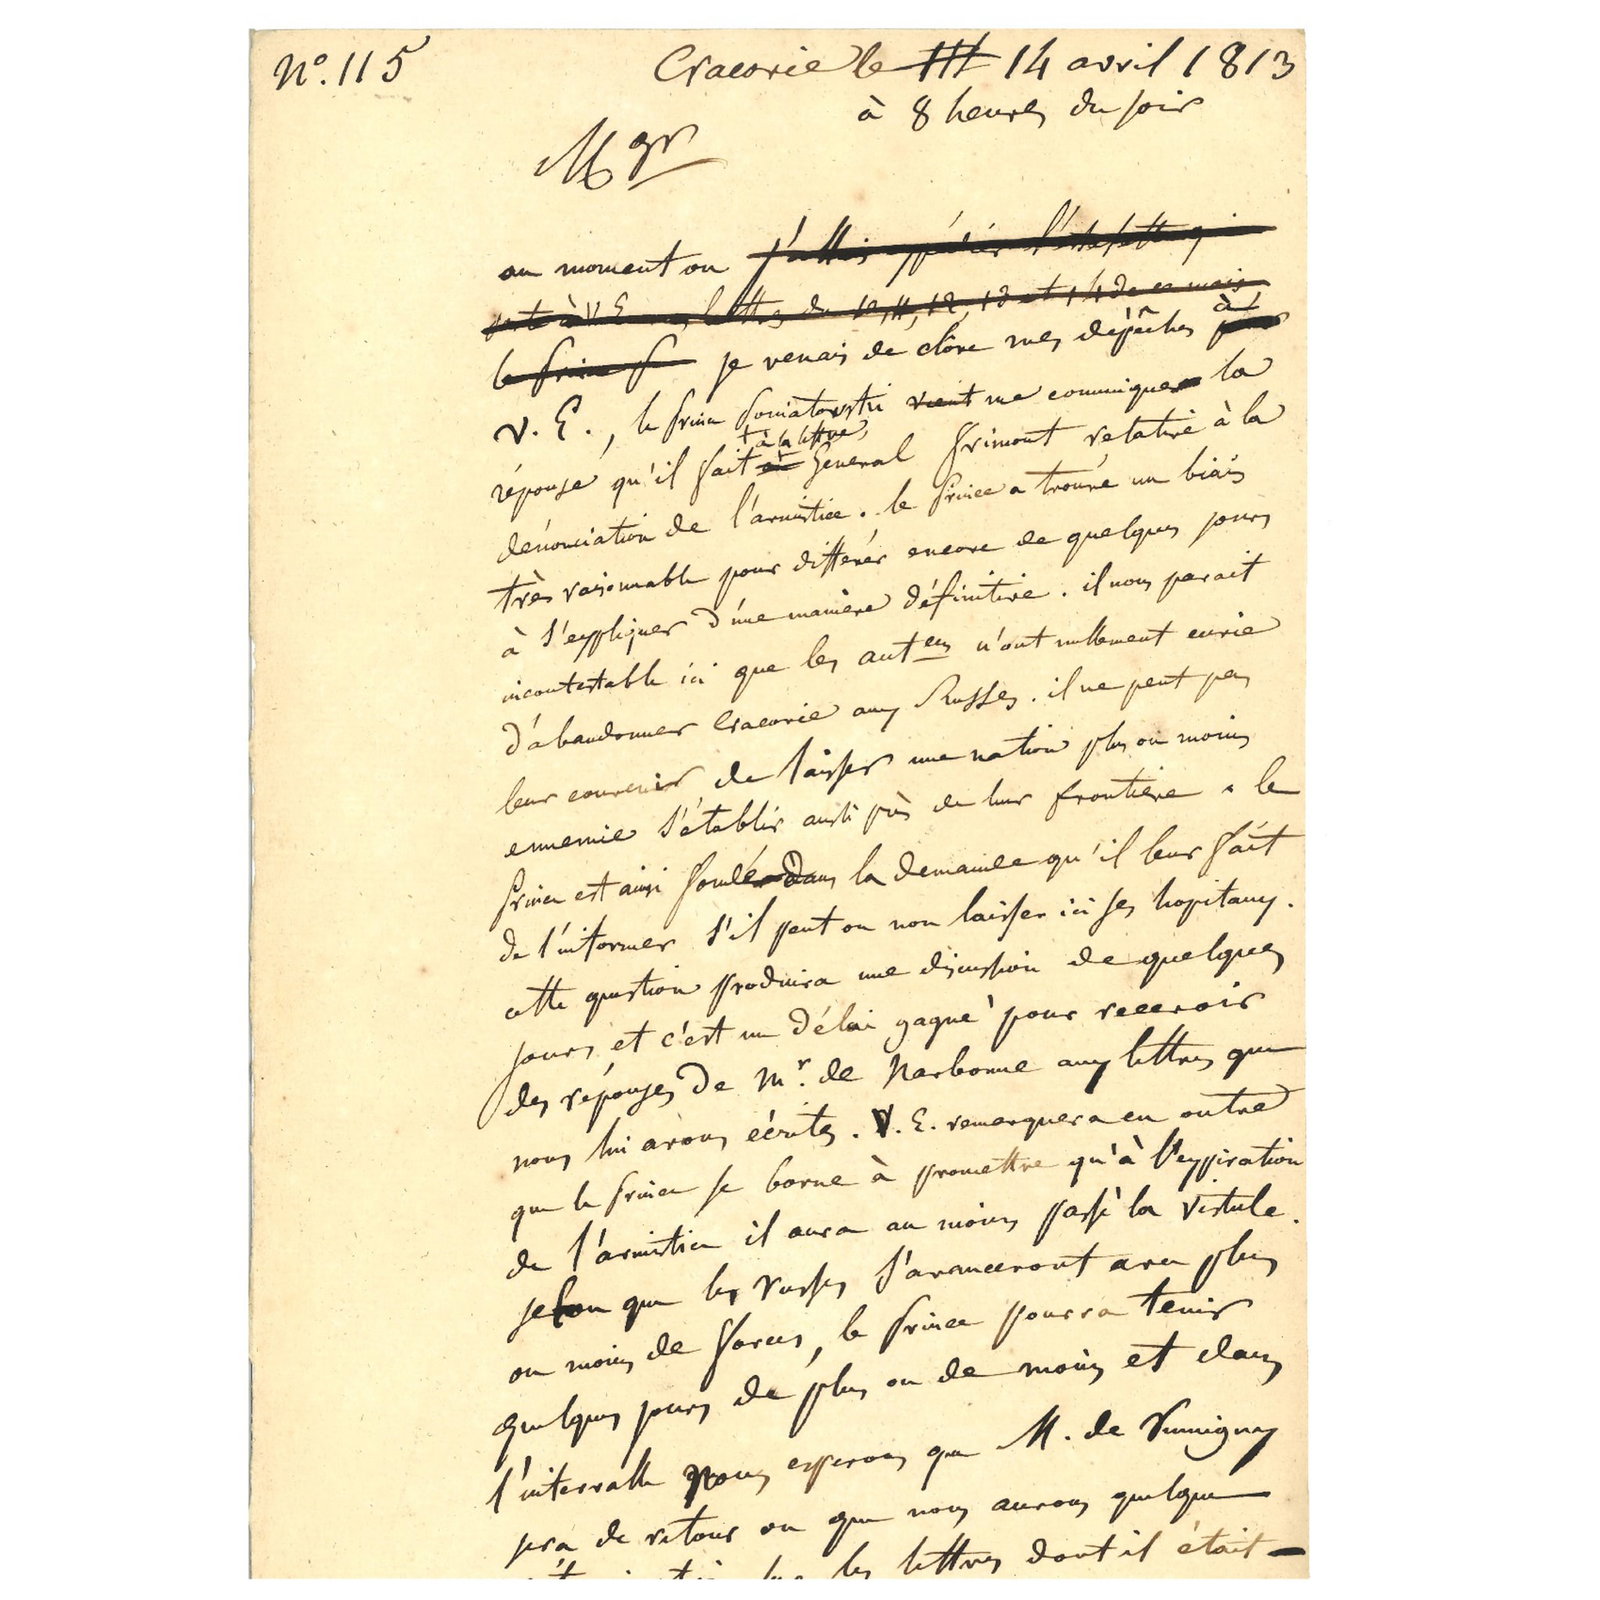 N.º 115
Cracovie le 14 avril 1813
à 8 heures du soir
Mgr
au moment ou j'allais expédier l'estafette qui
porte à V. E. mes lettres du 10, 11, 12, 13 et 14 de ce mois
le prince P je venais de clôre mes dépêches à
V. E., le prince Poniatowski vient me communiquer la
réponse qu'il fait à la lettre au General Frimont relative à la
dénonciation de l'armistice. le prince a trouvé un biais
très raisonnable pour différer encore de quelques jours
à s'expliquer d'une manière définitive. il nous parait
incontestable ici que les autens n'ont nullement envie
d'abandonner Cracovie aux Russes. il ne peut pas
leur convenir de laisser une nation plus ou moins
ennemie s'établir aussi près de leur frontière. le
prince est ainsi fondé dans la demande qu'il leur fait
de l'informer s'il peut ou non laisser ici ses hopitaux.
cette question produira une discussion de quelques
jours et c'est un délai gagné pour recevoir
des réponses de Mr. de Narbonne aux lettres que
nous lui avons écrites. V. E. remarquera en outre
que le prince se borne à promettre qu'à l'expiration
de l'armistice il aura au moins passé la Vistule.
selon que les russes s'avanceront avec plus
ou moins de forces, le prince pourra tenir
quelques jours de plus ou de moins et dans
l'intervalle nous esperons que M. de Rumigny
sera de retour ou que nous aurons quelque
les lettres dont il était